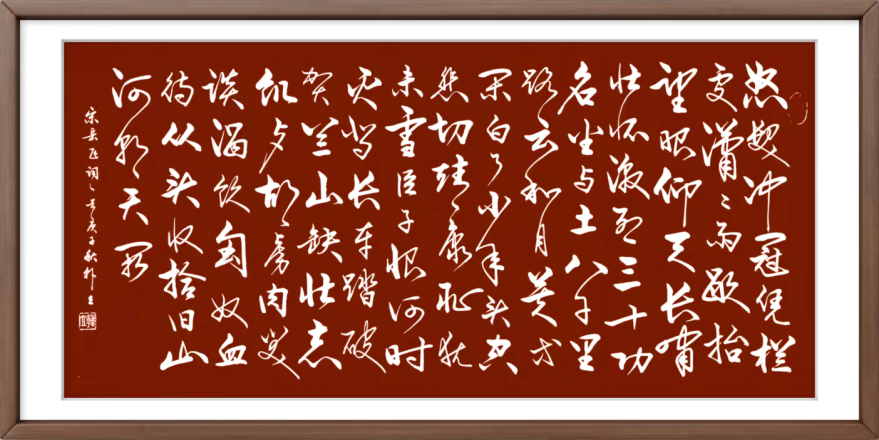 怒髮冲冠凭栏
處潇潇雨歇抬
望眼仰天长啸
壮怀激烈三十功
名尘与土八千里
路云和月莫等
闲白了少年头空
悲切靖康耻犹
未雪臣子恨何时
灭驾长车踏破
贺兰山缺壮志
饥餐胡虏肉笑
谈渴饮匈奴血
待从头收拾旧山
河朝天阙
宋岳飞词一首庚子秋